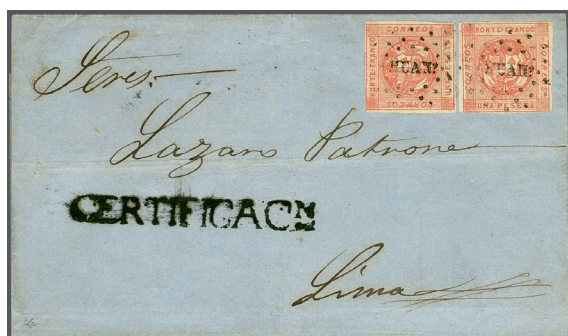 CORREOS
PORTE FRANCO
CORREOS
PORTE FRANCO
CORREOS
UNA PESETA
Sres.
Lazaro Patrone
CERTIFICACN
Lima